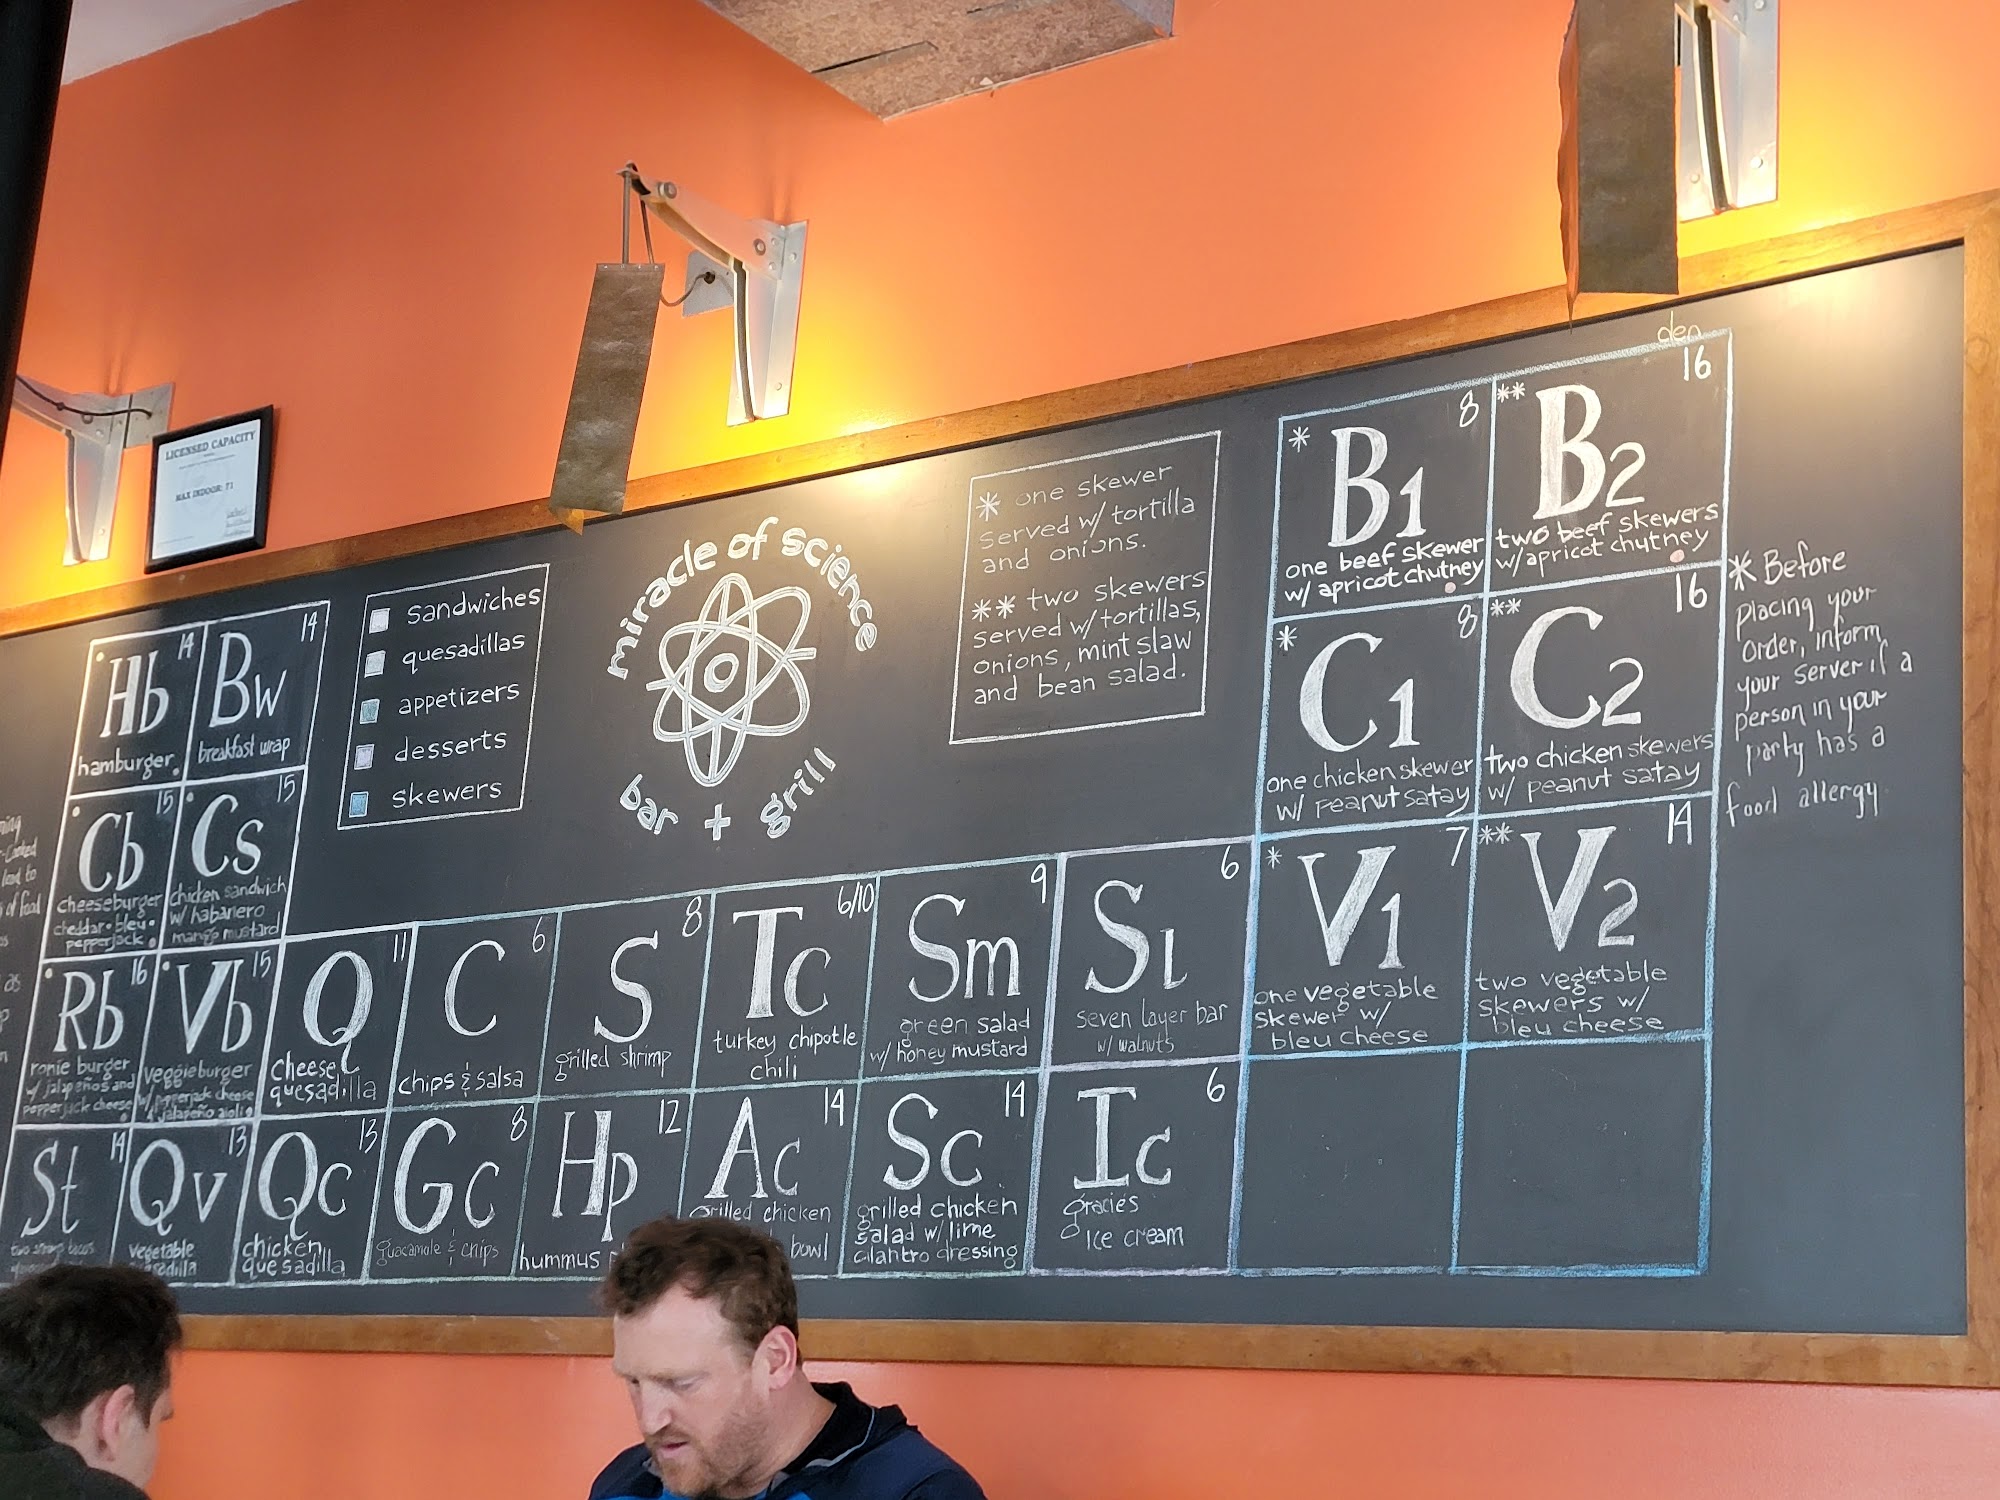 LICENSED CAPACITY
MAX INDOOR: 71
miracle of science
bar + grill
sandwiches
quesadillas
appetizers
desserts
skewers
* one skewer
served w/ tortilla
and onions.
** two skewers
served w/ tortillas,
onions, mint slaw
and bean salad.
den
* B1 8
one beef skewer
w/ apricot chutney
** B2 16
two beef skewers
w/ apricot chutney
* C1 8
one chicken skewer
w/ peanut satay
** C2 16
two chicken skewers
w/ peanut satay
* V1 7
one vegetable
skewer w/
bleu cheese
** V2 14
two vegetable
skewers w/
bleu cheese
* Before
placing your
order, inform
your server if a
person in your
party has a
food allergy
Hb 14
hamburger
Bw 14
breakfast wrap
Cb 15
cheeseburger
cheddar • bleu •
pepperjack
Cs 15
chicken sandwich
w/ habanero
mango mustard
Rb 16
ronie burger
w/ jalapeños and
pepperjack cheese
Vb 15
veggieburger
w/ pepperjack cheese
& jalapeño aioli
Q 11
cheese
quesadilla
C 6
chips & salsa
S 8
grilled shrimp
Tc 6/10
turkey chipotle
chili
Sm 9
green salad
w/ honey mustard
SL 6
seven layer bar
w/ walnuts
St 14
two shrimp tacos
Qv 13
vegetable
quesadilla
Qc 13
chicken
quesadilla
Gc 8
guacamole & chips
Hp 12
hummus
Ac 14
grilled chicken
bowl
Sc 14
grilled chicken
salad w/ lime
cilantro dressing
Ic 6
gracies
ice cream
cooked
lead to
of food
as